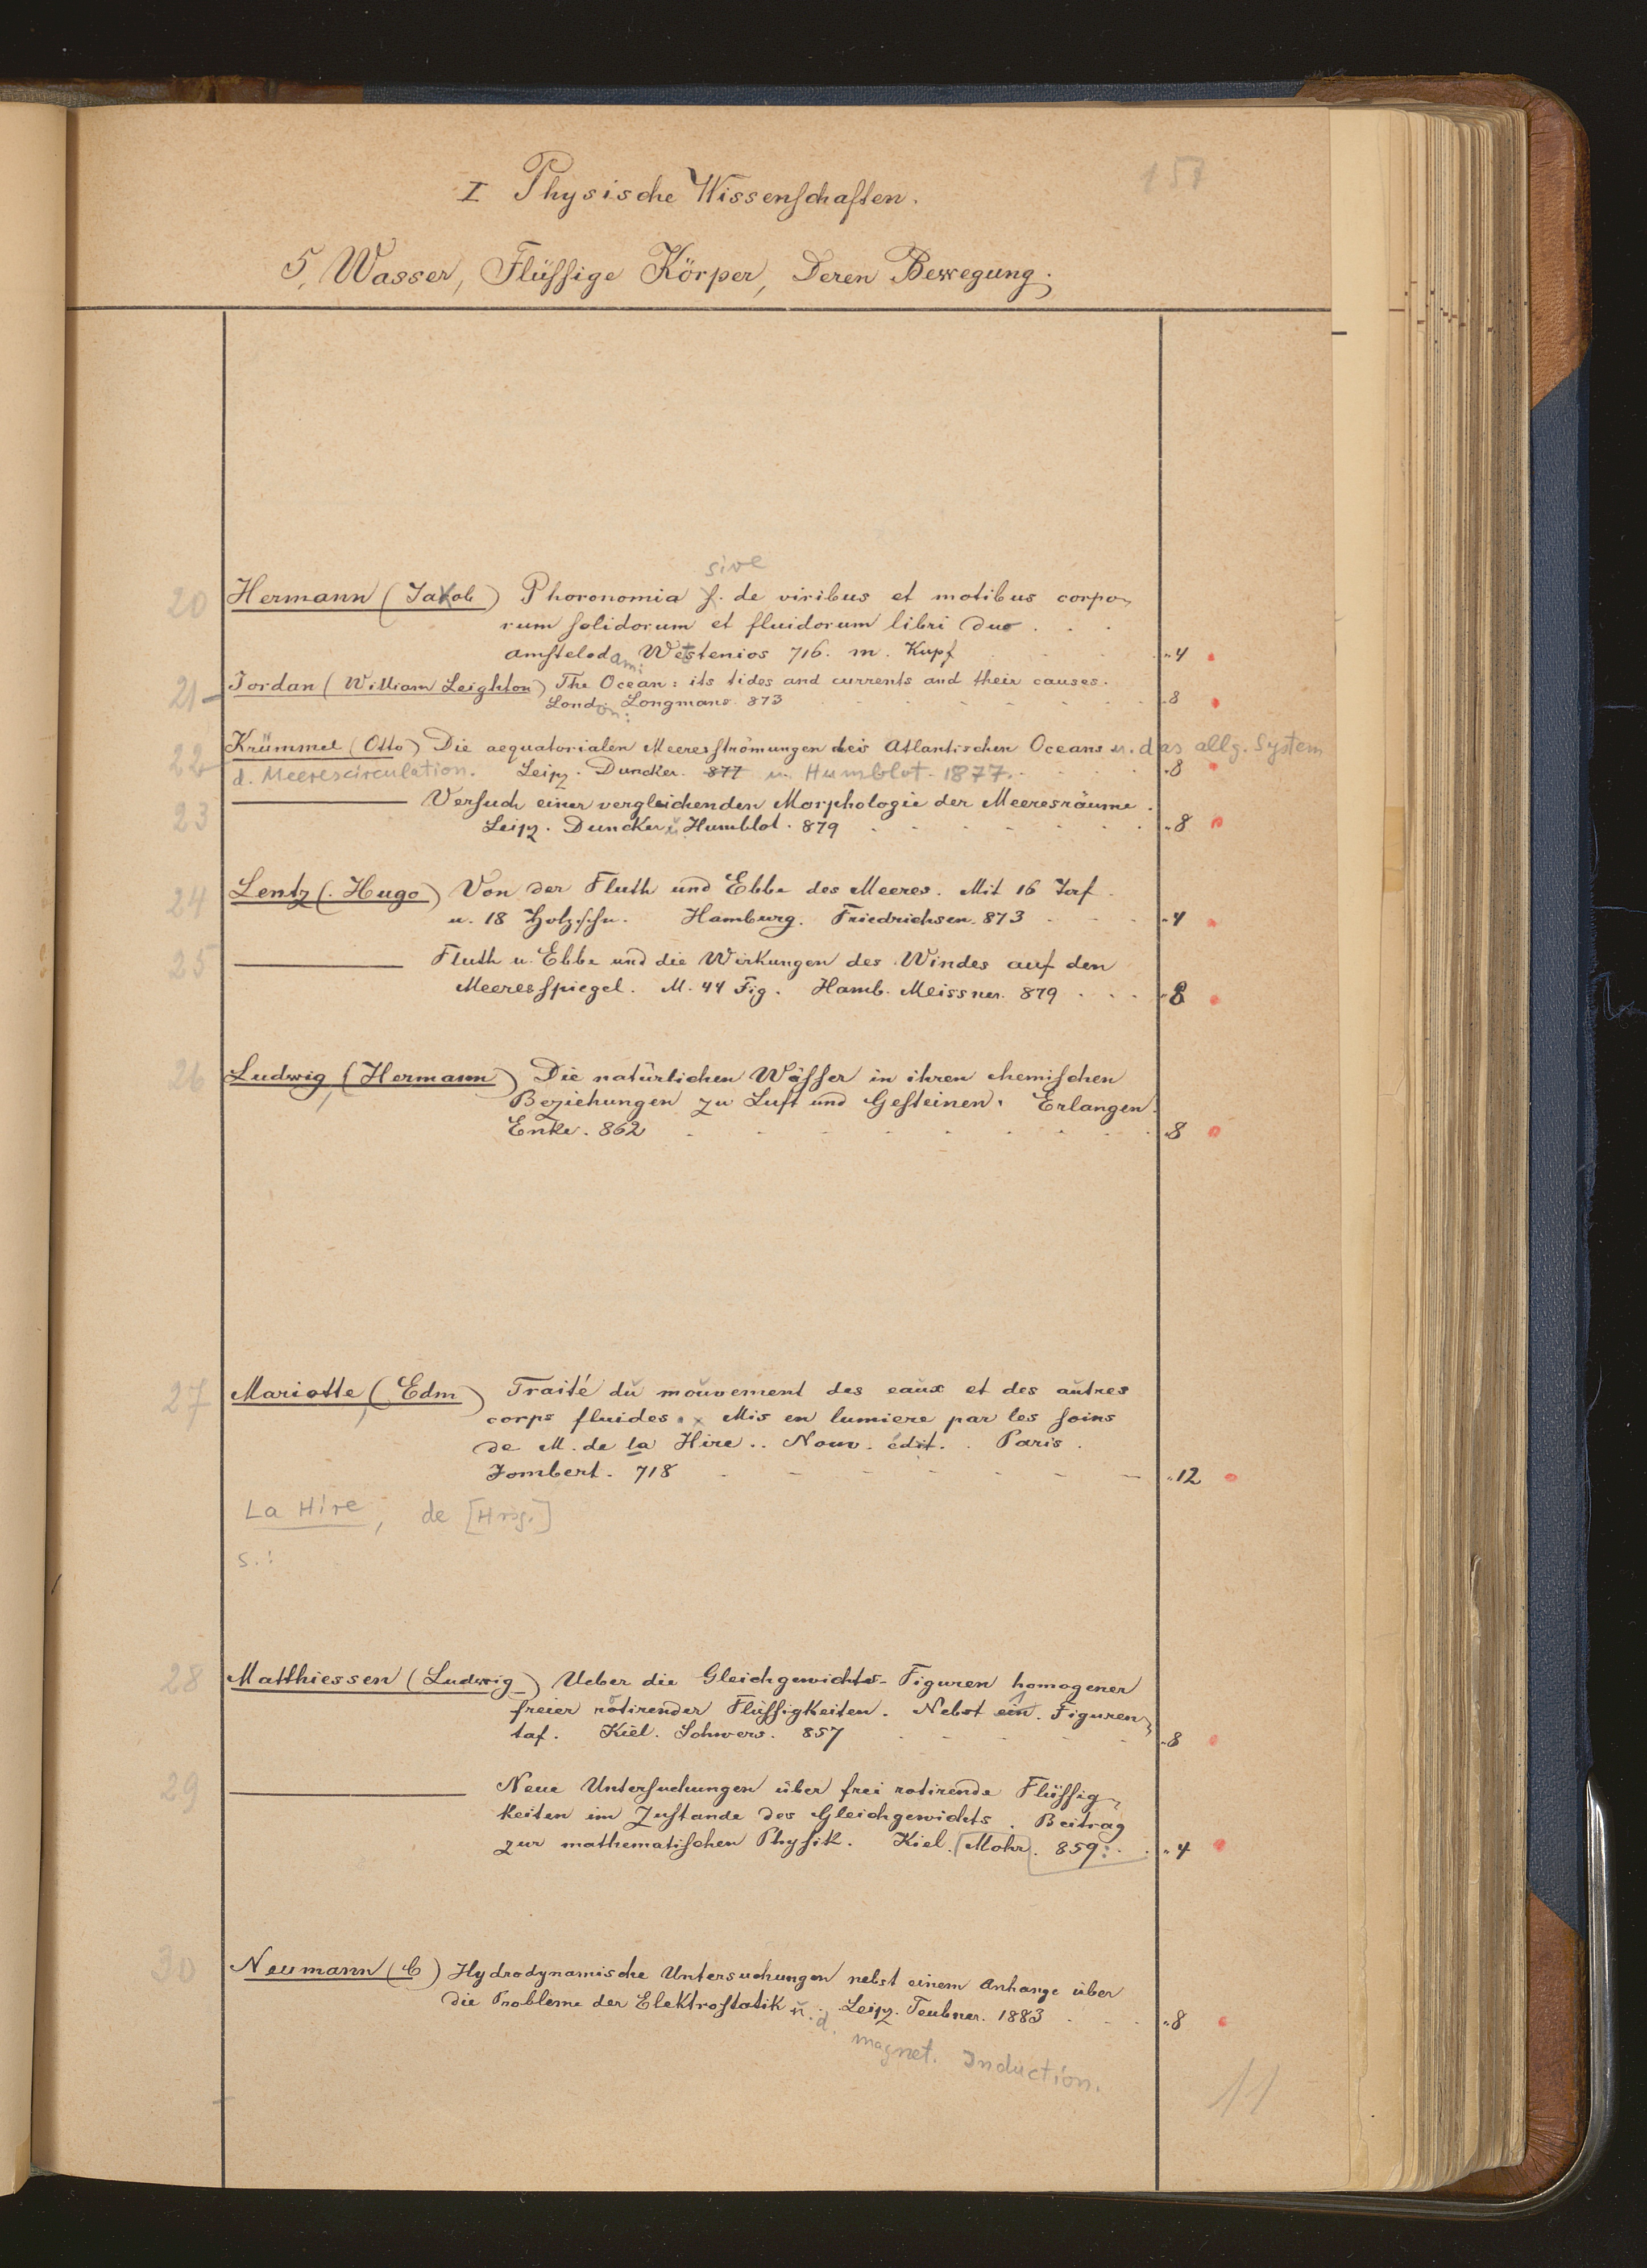 158
I Physische Wissenschaften.
5, Wasser, Flüssige Körper, Deren Bewegung.
sive
20 Hermann (Jakob) Phoronomia s. de viribus et motibus corpo-
rum solidorum et fluidorum libri duo . . .
Amstelodam: Wetstenios 716. m. Kupf "4
21 Jordan (William Leighton) The Ocean: its tides and currents and their causes.
London: Longmans 873 "8
22 Krümmel (Otto) Die aequatorialen Meeresströmungen des Atlantischen Oceans u. das allg. System
d. Meerescirculation. Leipz. Duncker. 877 u. Humblot. 1877. "8
23 ——— Versuch einer vergleichenden Morphologie der Meeresräume.
Leipz. Duncker u. Humblot. 879 "8
24 Lentz (Hugo) Von der Fluth und Ebbe des Meeres. Mit 16 Taf.
u. 18 Holzschn. Hamburg. Friedrichsen. 873 "4
25 ——— Fluth u. Ebbe und die Wirkungen des Windes auf den
Meeresspiegel. M. 44 Fig. Hamb. Meissner. 879 . . . "8
26 Ludwig, (Hermann) Die natürlichen Wässer in ihren chemischen
Beziehungen zu Luft und Gesteinen. Erlangen.
Enke. 862 "8
27 Mariotte, (Edm) Traité du mouvement des eaux et des autres
corps fluides. x Mis en lumiere par les soins
de M. de la Hire.. Nouv. édit. . Paris.
Jombert. 718 "12
La Hire, de [Hrsg.]
s.:
28 Matthiessen (Ludwig) Ueber die Gleichgewichts-Figuren homogener
freier rotirender Flüssigkeiten. Nebst ein. Figuren-
taf. Kiel. Schwers. 857 "8
29 ——— Neue Untersuchungen über frei rotirende Flüssig-
keiten im Zustande des Gleichgewichts. Beitrag
zur mathematischen Physik. Kiel. [Mohr]. 859. "4
30 Neumann (C) Hydrodynamische Untersuchungen nebst einem Anhange über
die Probleme der Elektrostatik u. d. Leipz. Teubner. 1883 . . . "8
magnet. Induction.
11